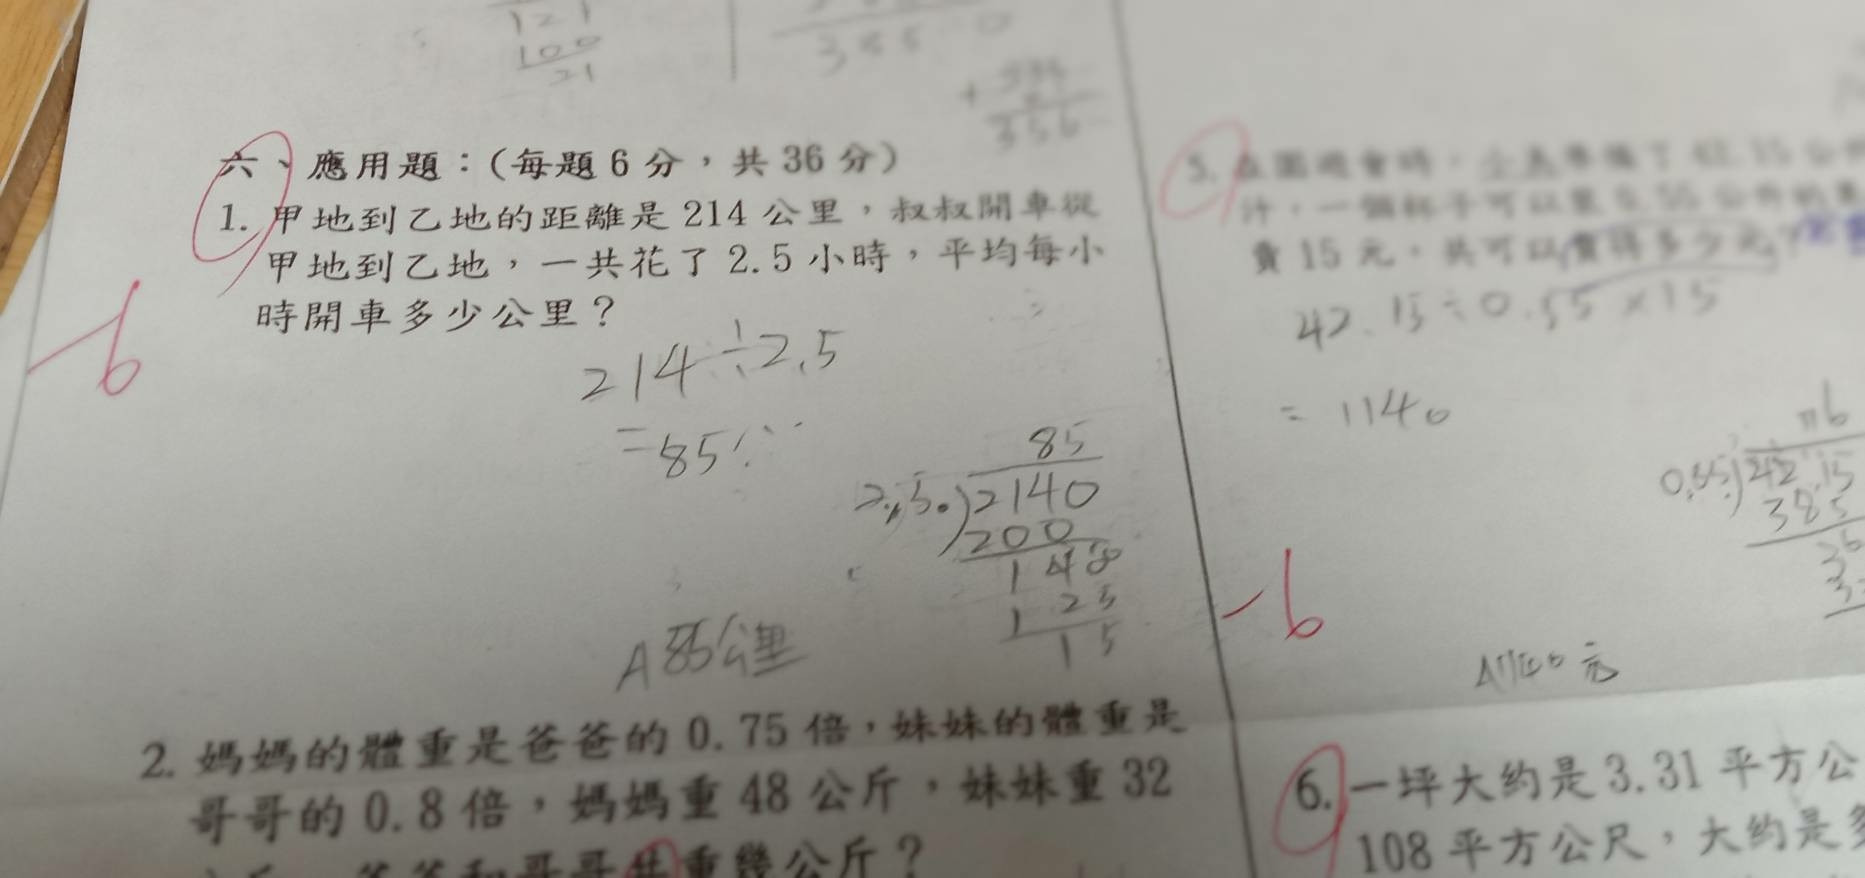 121
100
21
385 0
+
356
六、應用題：(每題6分，共36分)
1. 甲地到乙地的距離是214公里，叔叔開車從
甲地到乙地，一共花了2.5小時，平均每小
時開車多少公里？
-6
214÷2.5
=85
85
2.5.)2140
200
140
125
15
A 85公里
2. 媽媽的體重是爸爸的0.75倍，妹妹的體重是
哥哥的0.8倍，媽媽重48公斤，妹妹重32
公斤，爸爸和哥哥共重幾公斤？
5.
汁，一個杯子可以裝0.55公升的果
賣15元，共可以賣得多少元？
42.15÷0.55×15
= 1140
76
0.55)42.15
385
36
-6
A 1140元
6. 一坪大約是3.31平方公
108平方公尺，大約是多